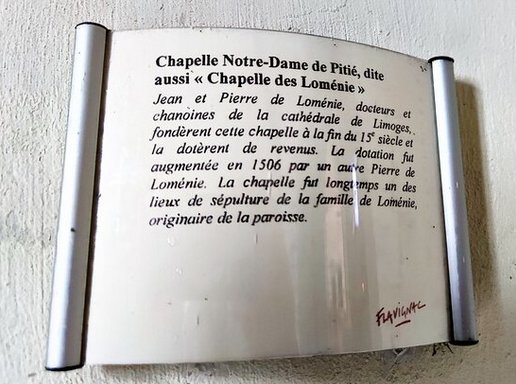 Chapelle Notre-Dame de Pitié, dite
aussi « Chapelle des Loménie »
Jean et Pierre de Loménie, docteurs et
chanoines de la cathédrale de Limoges,
fondèrent cette chapelle à la fin du 15e siècle et
la dotèrent de revenus. La dotation fut
augmentée en 1506 par un autre Pierre de
Loménie. La chapelle fut longtemps un des
lieux de sépulture de la famille de Loménie,
originaire de la paroisse.
FLAVIGNAC